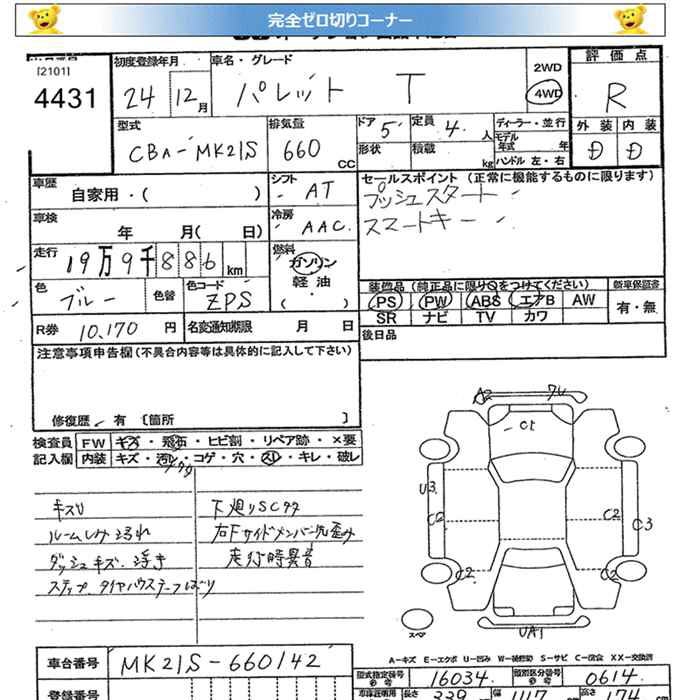 完全ゼロ切りコーナー
[2101]
4431
初度登録年月
24 12月
車名・グレード
パレット T
2WD
4WD
評価点
R
外装 内装
D D
型式
CBA-MK21S
排気量
660 cc
ドア 5
定員 4 人
形状
積載 kg
ディーラー・並行
モデル年式 年
ハンドル 左・右
車歴
自家用・( )
シフト
AT
セールスポイント (正常に機能するものに限ります)
プッシュスタート
スマートキー
車検
年 月( 日)
冷房
AAC
走行
19万9千886km
燃料
ガソリン
軽油
( )
色
ブルー
色替
色コード
ZPS
装備品 (純正品に限り○をつけてください)
新車保証書
PS PW ABS エアB AW
SR ナビ TV カワ
有・無
R券 10,170 円
名変通知期限 月 日
後日品
注意事項申告欄(不具合内容等は具体的に記入して下さい)
修復歴 有 〔箇所 〕
検査員記入欄
FW キズ・飛石・ヒビ割・リペア跡・×要
内装 キズ・汚レ・コゲ・穴・スレ・キレ・破レ
キズU
ルームしみ汚れ
ダッシュキズ、浮き
下廻りSCサ
右Fサイドメンバー先歪み
走行時異音
A2
C1
U3
C2
C2
C3
C2
C2
UA1
スペア
A-キズ E-エクボ U-凹み W-補修跡 S-サビ C-腐食 XX-交換済
車台番号
MK21S-660142
登録番号
型式指定番号
16034
類別区分番号
0614
長さ
339
幅
高さ